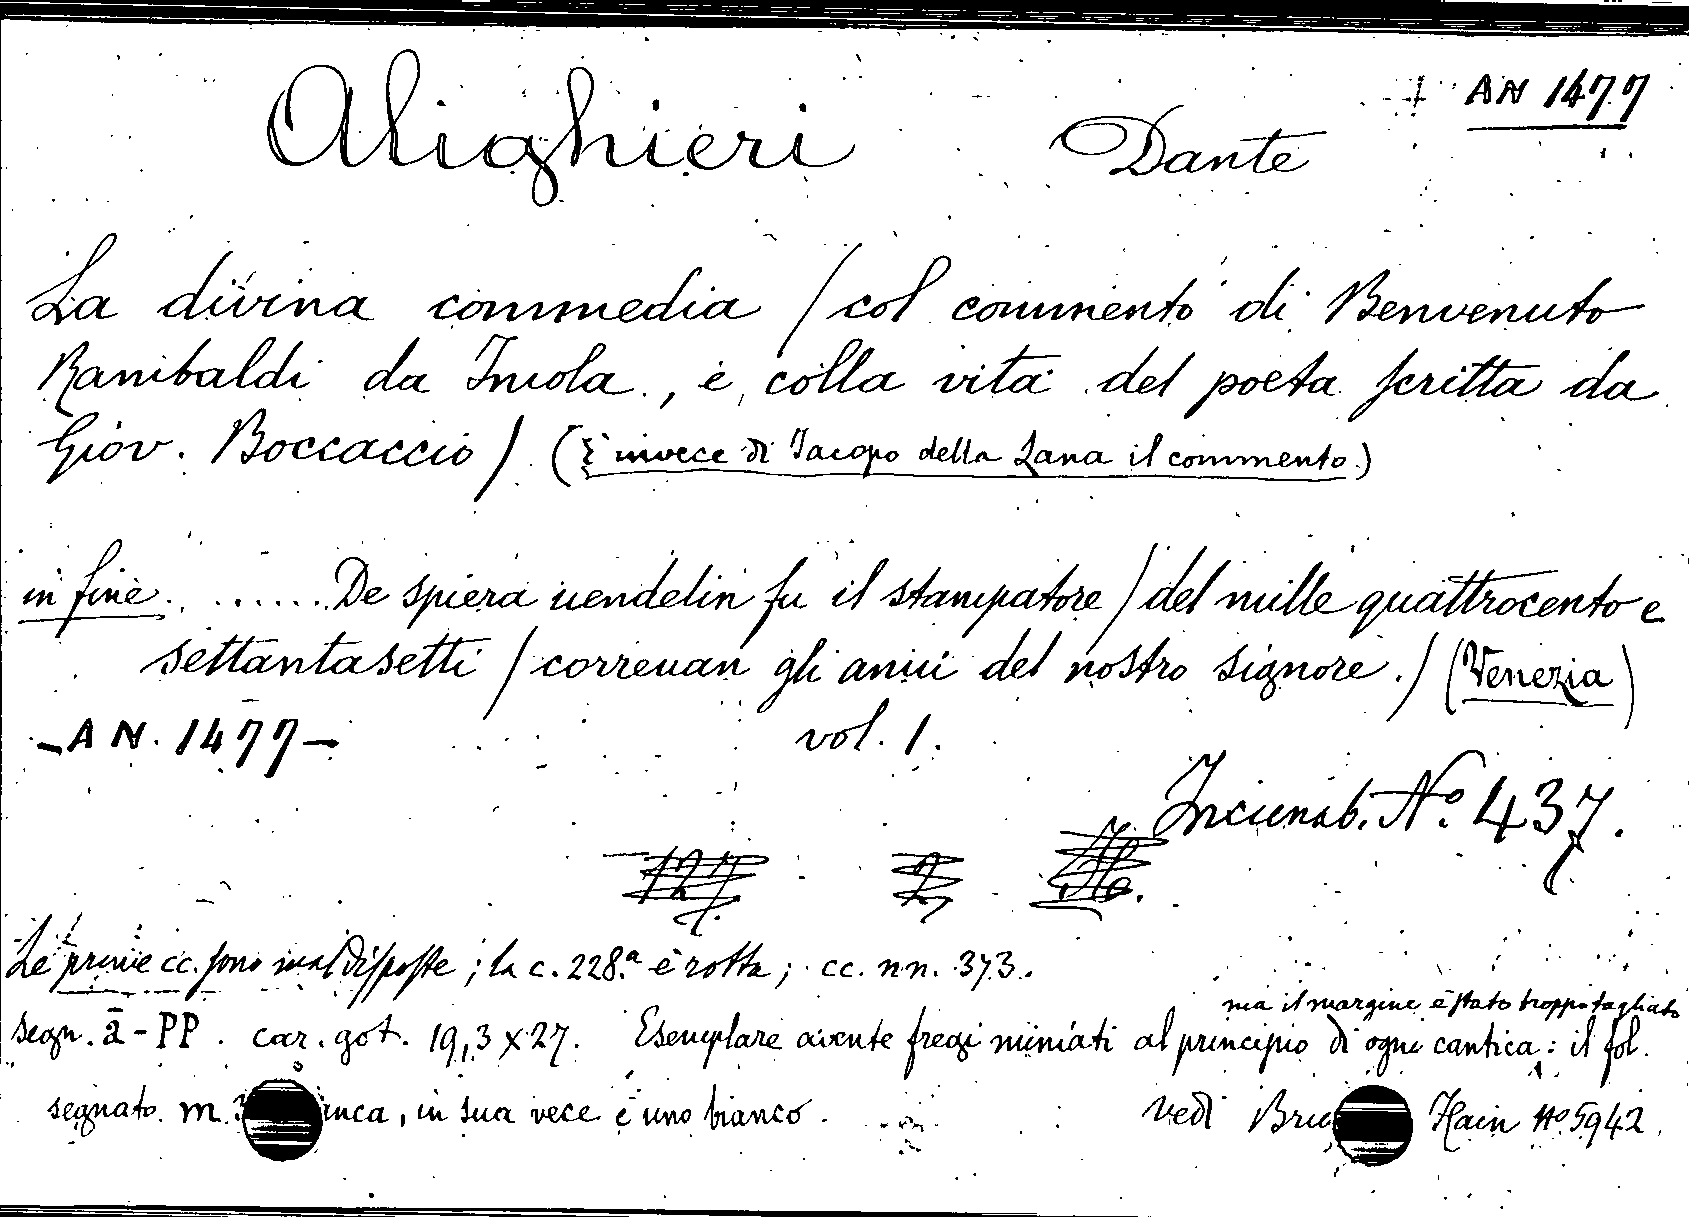 AN 1477
Alighieri Dante
La divina commedia / col commento di Benvenuto
Rambaldi da Imola, e colla vita del poeta scritta da
Giov. Boccaccio / (È invece di Jacopo della Lana il commento)
in fine. ...... De spiera uendelin fu il stampatore / del mille quattrocento e
settantasetti / correuan gli anni del nostro signore. / (Venezia)
- AN. 1477 - vol. 1.
Incunab. Nº. 437.
127. 2
Le prime cc. sono mal disposte; la c. 228.ª è rotta; cc. nn. 373.
ma il margine è stato troppo tagliato
segn. ā - PP. car. got. 19,3 x 27. Esemplare avente fregi miniati al principio di ogni cantica: il fol.
segnato m. anca, in sua vece è uno bianco. Vedi Bru Hain Nº 5942.